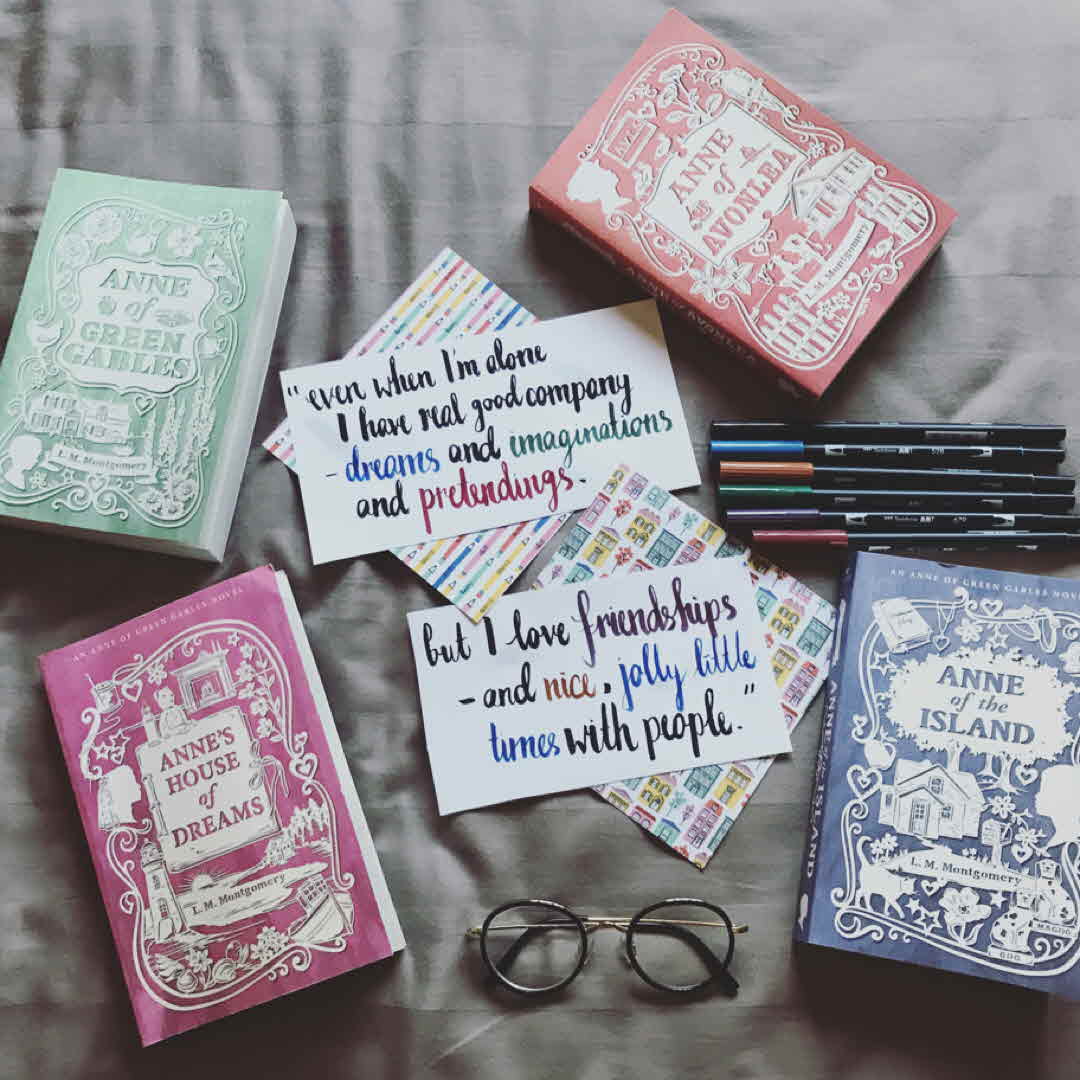 ANNE
of
GREEN
GABLES
L. M. Montgomery
ANNE
of
AVONLEA
L. M. Montgomery
"even when I'm alone
I have real good company
- dreams and imaginations
and pretendings.
but I love friendships
- and nice, jolly little
times with people."
AN ANNE OF GREEN GABLES NOVEL
ANNE'S
HOUSE
of
DREAMS
L. M. Montgomery
AN ANNE OF GREEN GABLES NOVEL
ANNE
of the
ISLAND
L. M. Montgomery
MAGOG
GOG